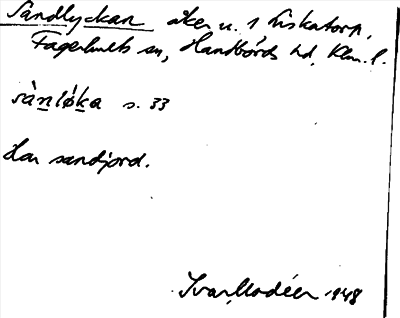 Sandlyckan åker u. 1 Fiskatorp,
Fagerhults sn, Handbörds hd, Klm. l.
sànlø̀ka s. 33
Har sandjord.
Ivar Modéer 1948